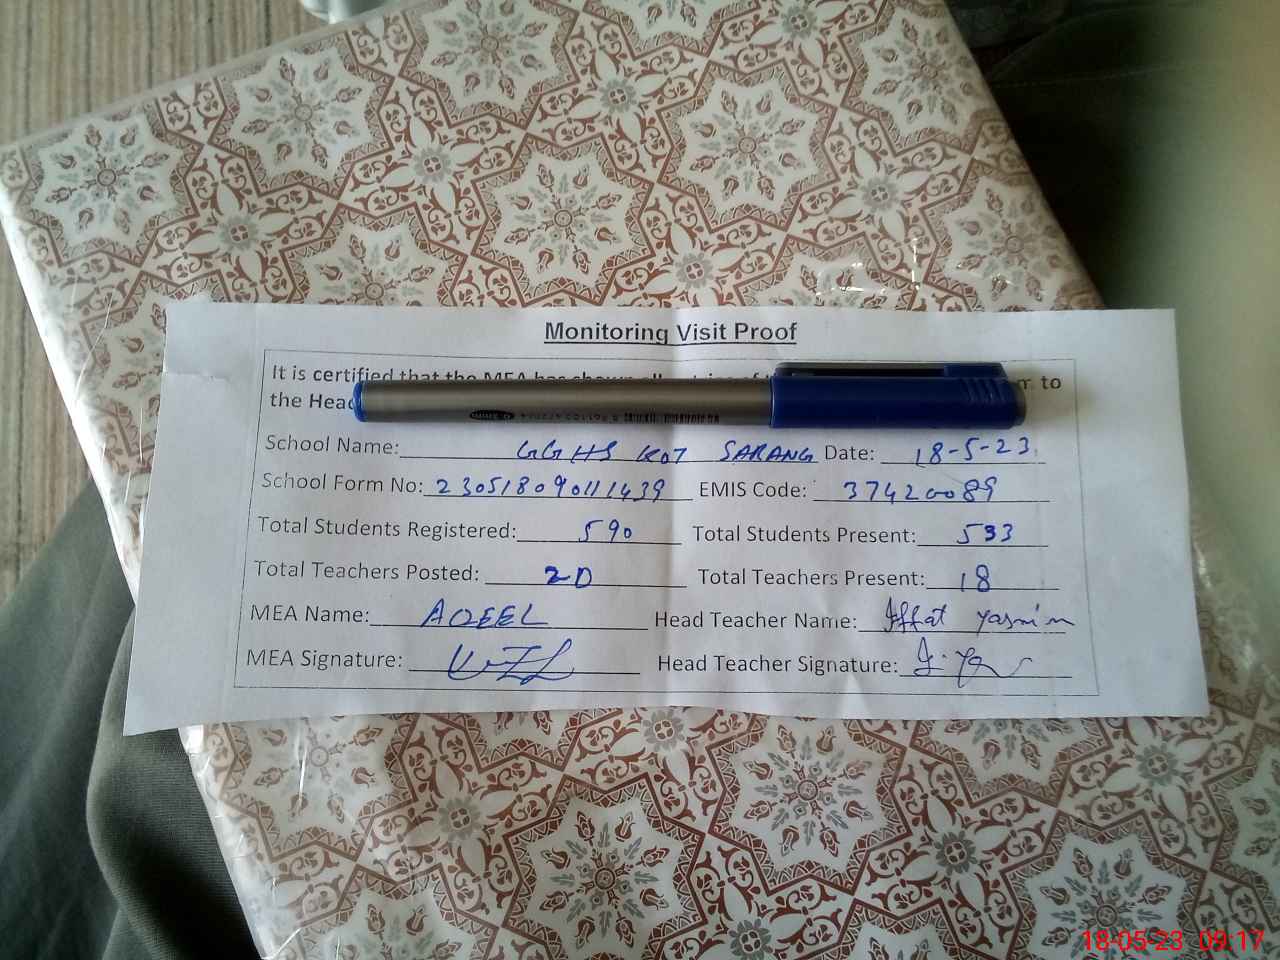 Monitoring Visit Proof
It is certified that the MEA has shown to
the Head
School Name: GGHS KOT SARANG Date: 18-5-23
School Form No: 230518090111439 EMIS Code: 37420089
Total Students Registered: 590 Total Students Present: 533
Total Teachers Posted: 20 Total Teachers Present: 18
MEA Name: AQEEL Head Teacher Name: Iffat Yasmin
MEA Signature: Head Teacher Signature:
18-05-23 09:17